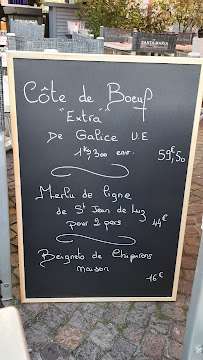 SANTA MARIA
Côte de Boeuf
"Extra"
De Galice U.E
1kg,300 env.
59€,50
Merlu de ligne
de St Jean de Luz
pour 2 pers
44€
Beignets de Chipirons
maison
16€